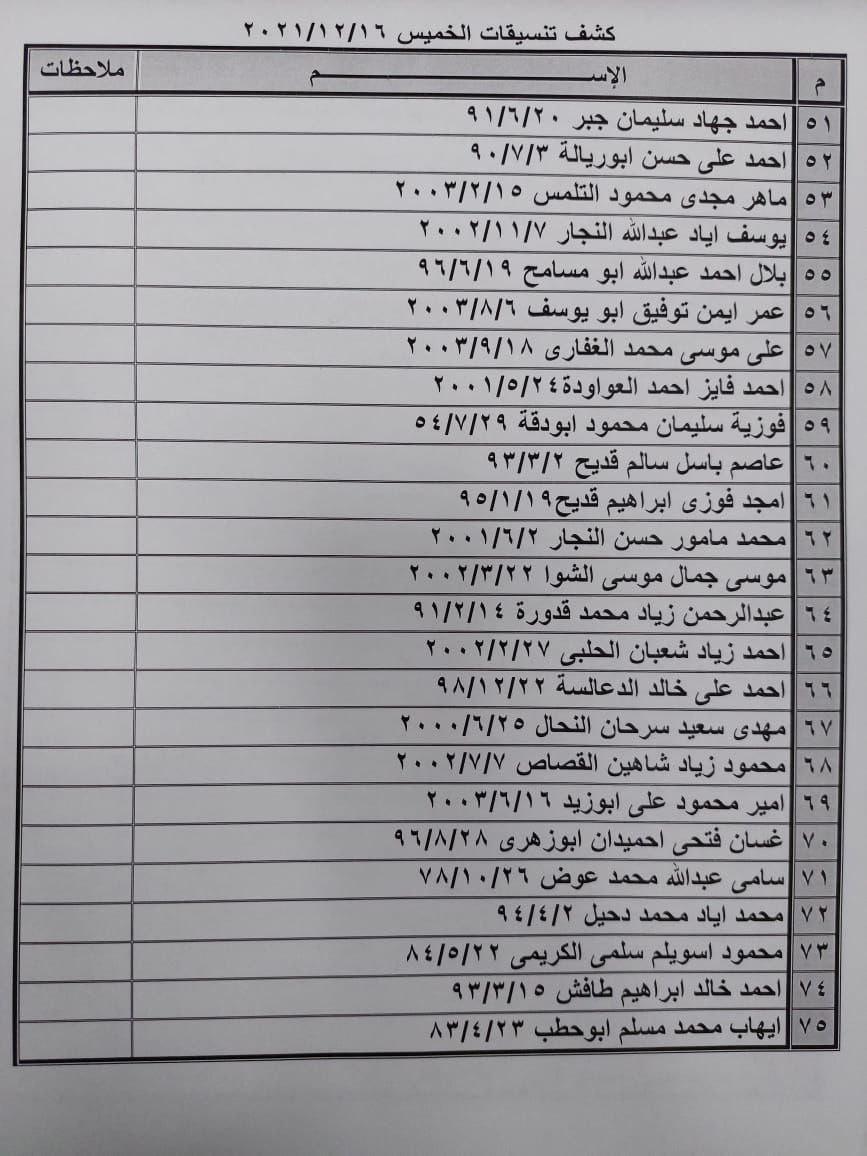 كشف تنسيقات الخميس ٢٠٢١/١٢/١٦
م الإســـــــــــــــــــــــم ملاحظات
٥١ احمد جهاد سليمان جبر ٩١/٦/٢٠
٥٢ احمد على حسن ابوريالة ٩٠/٧/٣
٥٣ ماهر مجدى محمود التلمس ٢٠٠٣/٢/١٥
٥٤ يوسف اياد عبدالله النجار ٢٠٠٢/١١/٧
٥٥ بلال احمد عبدالله ابو مسامح ٩٦/٦/١٩
٥٦ عمر ايمن توفيق ابو يوسف ٢٠٠٣/٨/٦
٥٧ على موسى محمد الغفارى ٢٠٠٣/٩/١٨
٥٨ احمد فايز احمد العواودة ٢٠٠١/٥/٢٤
٥٩ فوزية سليمان محمود ابودقة ٥٤/٧/٢٩
٦٠ عاصم باسل سالم قديح ٩٣/٣/٢
٦١ امجد فوزى ابراهيم قديح ٩٥/١/١٩
٦٢ محمد مامور حسن النجار ٢٠٠١/٦/٢
٦٣ موسى جمال موسى الشوا ٢٠٠٢/٣/٢٢
٦٤ عبدالرحمن زياد محمد قدورة ٩١/٢/١٤
٦٥ احمد زياد شعبان الحلبى ٢٠٠٢/٢/٢٧
٦٦ احمد على خالد الدعالسة ٩٨/١٢/٢٢
٦٧ مهدى سعيد سرحان النحال ٢٠٠٠/٦/٢٥
٦٨ محمود زياد شاهين القصاص ٢٠٠٢/٧/٧
٦٩ امير محمود على ابوزيد ٢٠٠٣/٦/١٦
٧٠ غسان فتحى احميدان ابوزهرى ٩٦/٨/٢٨
٧١ سامى عبدالله محمد عوض ٧٨/١٠/٢٦
٧٢ محمد اياد محمد دحيل ٩٤/٤/٢
٧٣ محمود اسويلم سلمى الكريمى ٨٤/٥/٢٢
٧٤ احمد خالد ابراهيم طافش ٩٣/٣/١٥
٧٥ ايهاب محمد مسلم ابوحطب ٨٣/٤/٢٣